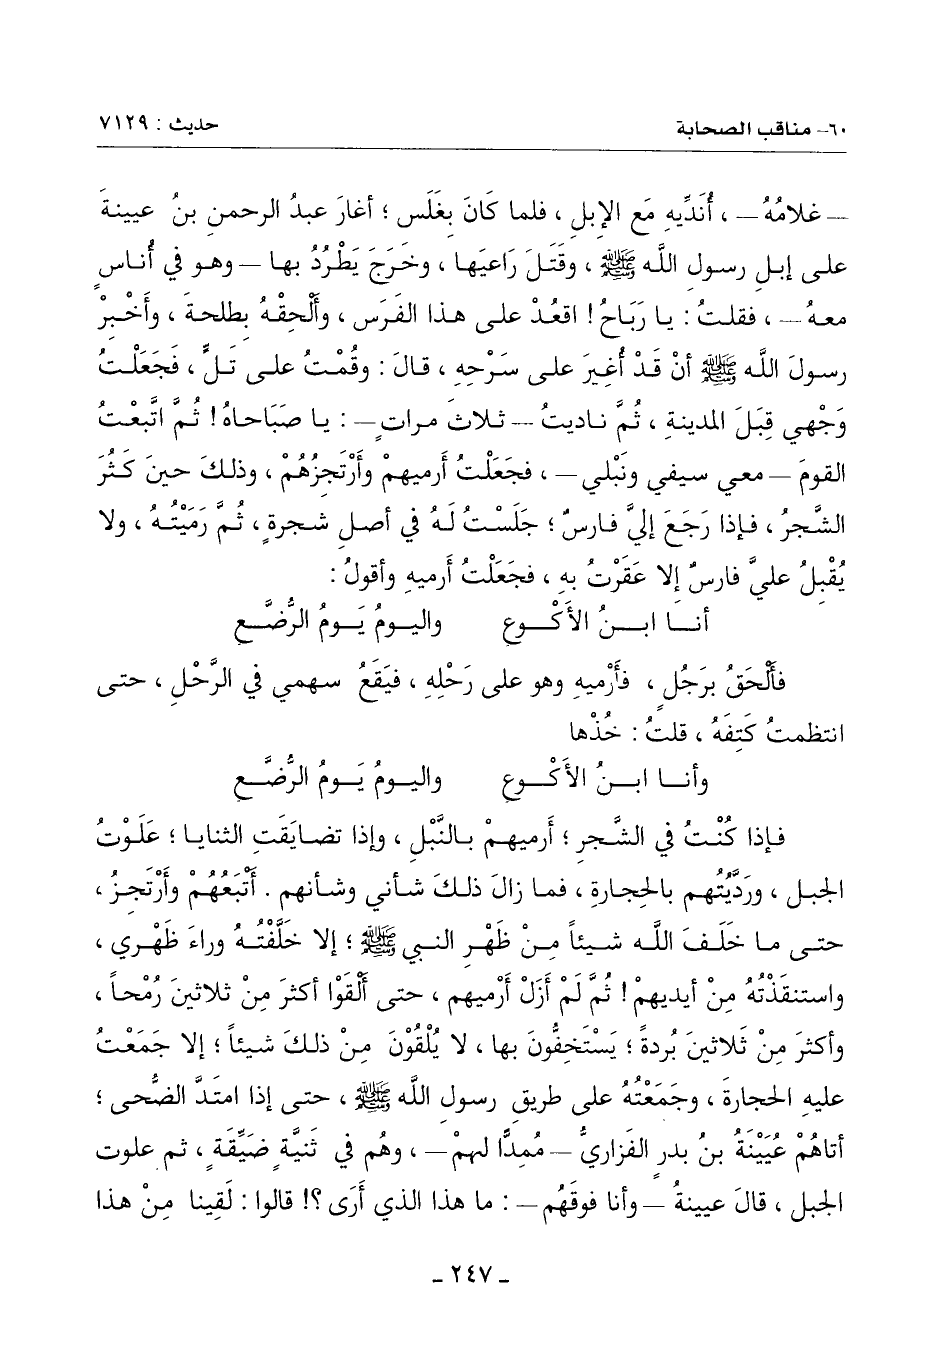 ٦٠- مناقب الصحابة حديث : ٧١٢٩
– غلامُهُ – ، أُنَدِّيهِ مَع الإبلِ ، فلما كَانَ بِغَلَسٍ ؛ أغارَ عبدُ الرحمنِ بنُ عيينةَ
على إبلِ رسولِ اللَّه ﷺ ، وقَتَلَ رَاعيَها ، وخَرَجَ يَطْرُدُ بها – وهو في أُناسٍ
معهُ – ، فقلتُ : يا رَبَاحُ ! اقعُدْ على هذا الفَرَسِ ، وألْحِقْهُ بطلحةَ ، وأَخْبِرْ
رسولَ اللَّه ﷺ أنْ قَدْ أُغِيرَ على سَرْحِهِ ، قالَ : وقُمْتُ على تَلٍّ ، فَجَعَلْتُ
وَجْهي قِبَلَ المدينةِ ، ثُمَّ ناديتُ – ثلاثَ مراتٍ – : يا صَبَاحاهُ ! ثُمَّ اتَّبعْتُ
القومَ – معي سيفي ونَبْلي – ، فجَعَلْتُ أرميهمْ وأَرْتَجِزُهُمْ ، وذلكَ حينَ كَثُرَ
الشَّجرُ ، فإذا رَجَعَ إليَّ فارسٌ ؛ جَلَسْتُ لَهُ في أصلِ شجرةٍ ، ثُمَّ رَمَيْتُهُ ، ولا
يُقْبلُ عليَّ فارسٌ إلا عَقَرْتُ بهِ ، فجَعَلْتُ أرميهِ وأقولُ :
أنــا ابــنُ الأكْــوعِ واليــومُ يَــومُ الرُّضَّــعِ
فألْحَقُ بِرَجُلٍ ، فأَرْميهِ وهو على رَحْلِهِ ، فيَقَعُ سهمي في الرَّحْلِ ، حتى
انتظمتُ كَتِفَهُ ، قلتُ : خُذْها
وأنــا ابــنُ الأكْــوعِ واليــومُ يَــومُ الرُّضَّــعِ
فإذا كُنْتُ في الشَّجرِ ؛ أرميهمْ بالنَّبْلِ ، وإذا تضايَقَتِ الثنايا ؛ عَلَوْتُ
الجبلَ ، ورَدَّيْتُهم بالحجارةِ ، فما زالَ ذلكَ شأني وشأنهم . أَتْبَعُهُمْ وأَرْتَجزُ ،
حتى ما خَلَفَ اللَّه شيئاً مِنْ ظَهْرِ النبي ﷺ ؛ إلا خَلَّفْتُهُ وراءَ ظَهْري ،
واستنقَذْتُهُ مِنْ أيديهمْ ! ثُمَّ لَمْ أزَلْ أرْميهم ، حتى ألْقَوْا أكثرَ مِنْ ثلاثينَ رُمْحاً ،
وأكثرَ مِنْ ثَلاثينَ بُردةً ؛ يَسْتَخِفُّونَ بها ، لا يُلْقُوْنَ مِنْ ذلكَ شيئاً ؛ إلا جَمَعْتُ
عليهِ الحجارةَ ، وجَمَعْتُهُ على طريقِ رسولِ اللَّه ﷺ ، حتى إذا امتدَّ الضُّحى ؛
أتاهُمْ عُيَيْنَةُ بنُ بدرٍ الفزاريُّ – مُمِدًّا لهمْ – ، وهُم في ثَنيَّةٍ ضَيِّقَةٍ ، ثم علوت
الجبلَ ، قالَ عيينةُ – وأنا فوقَهُم – : ما هذا الذي أرَى ؟! قالوا : لَقِينا مِنْ هذا
– ٢٤٧ –